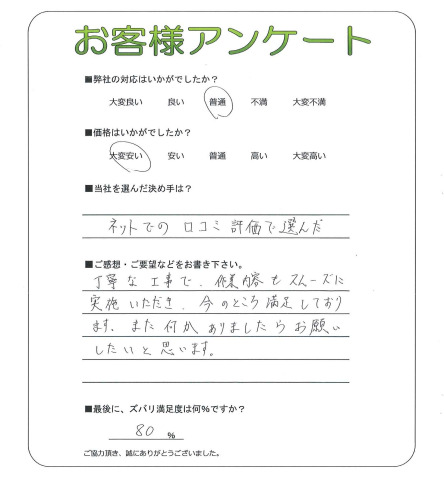 お客様アンケート
■弊社の対応はいかがでしたか？
大変良い 良い 普通 不満 大変不満
■価格はいかがでしたか？
大変安い 安い 普通 高い 大変高い
■当社を選んだ決め手は？
ネットでの 口コミ 評価で選んだ
■ご感想・ご要望などをお書き下さい。
丁寧な工事で、作業内容もスムーズに
実施いただき、今のところ満足しており
ます。また何かありましたらお願い
したいと思います。
■最後に、ズバリ満足度は何％ですか？
80 ％
ご協力頂き、誠にありがとうございました。